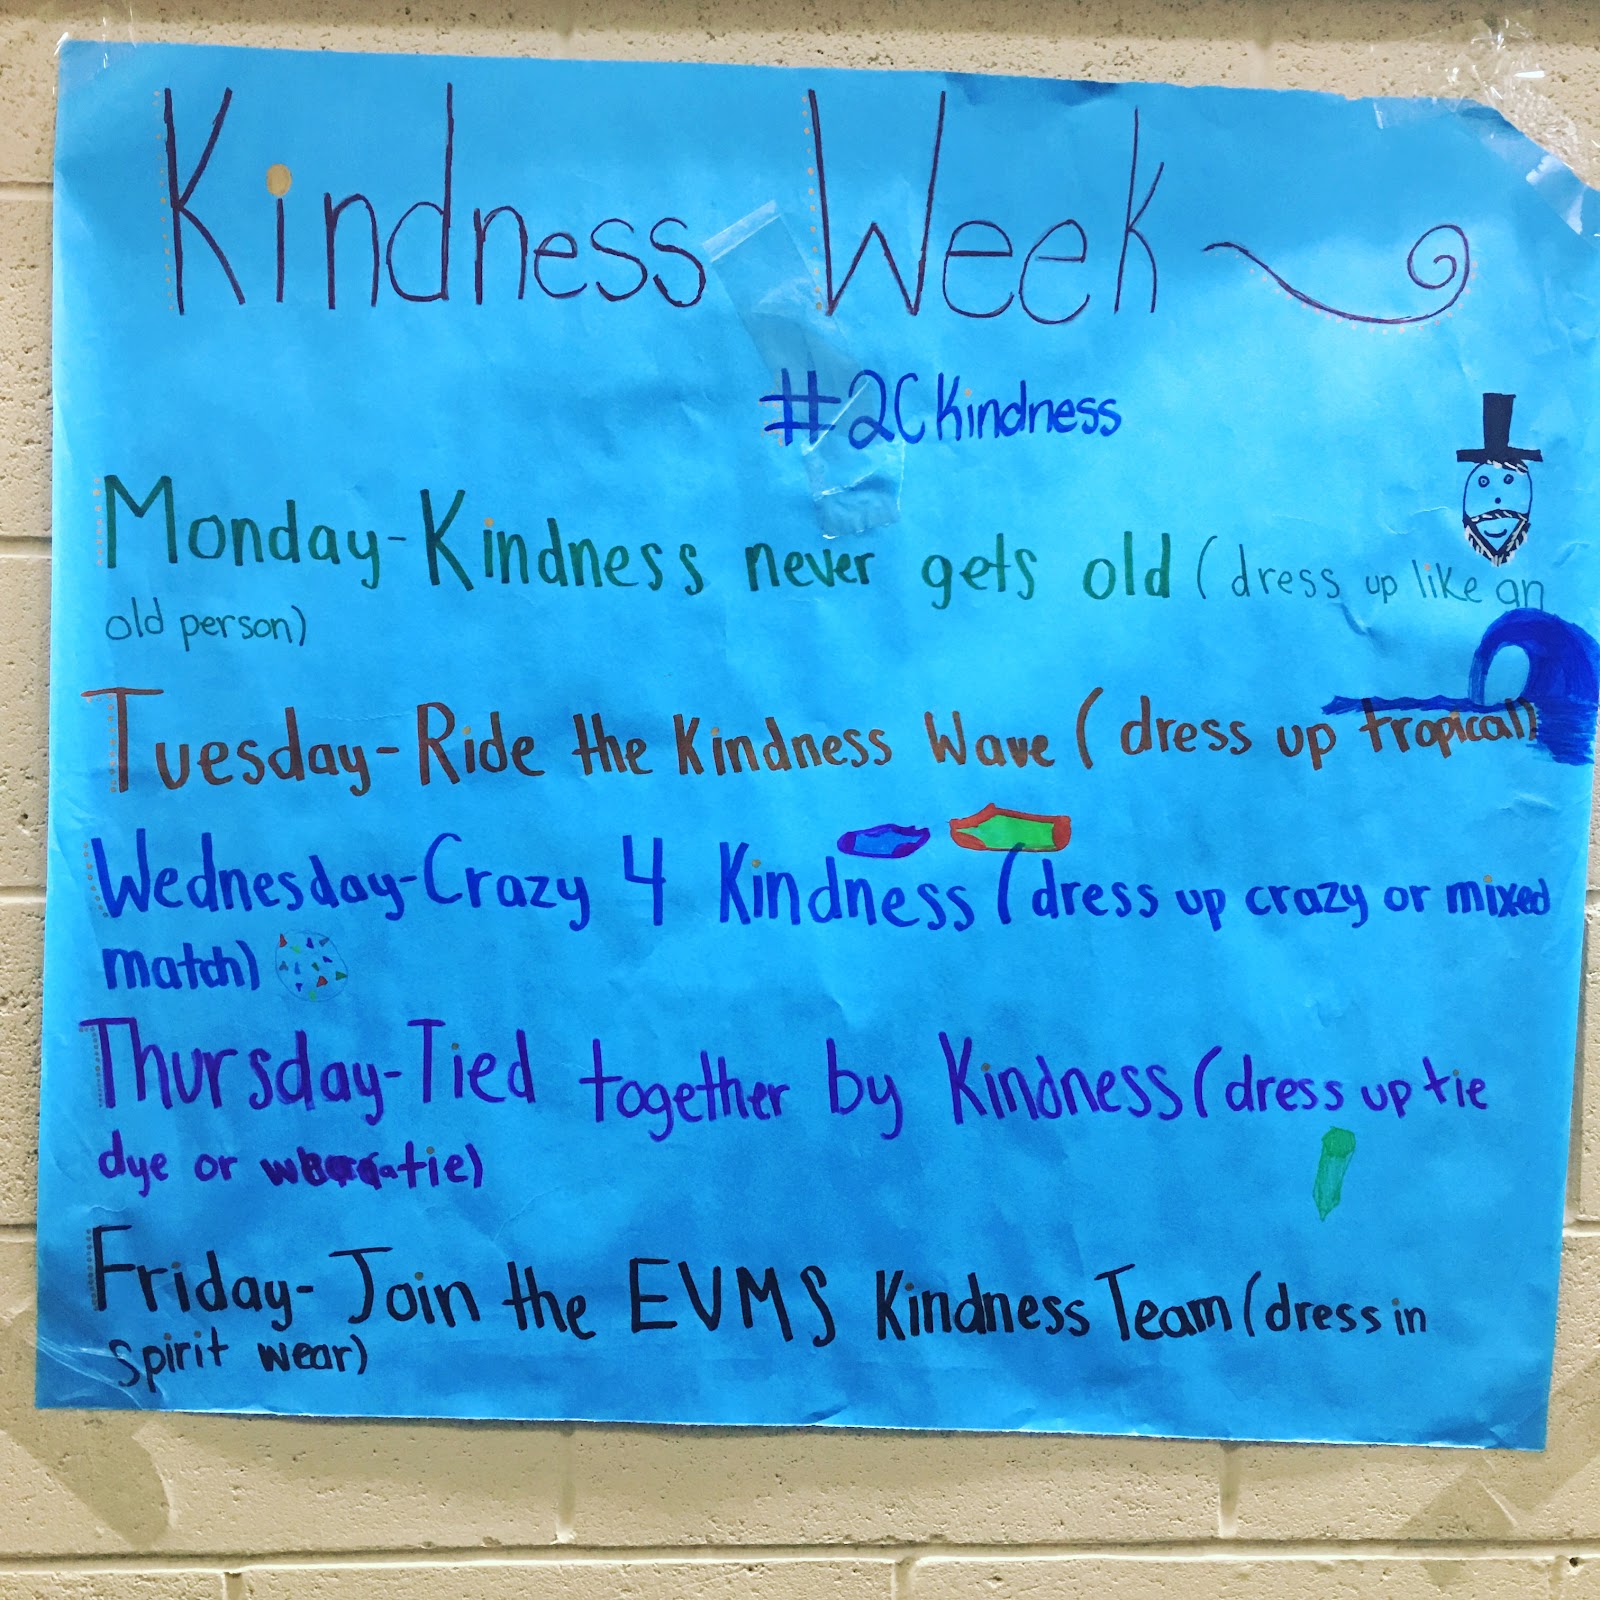 Kindness Week
#2CKindness
Monday-Kindness never gets old (dress up like an
old person)
Tuesday-Ride the Kindness Wave (dress up tropical)
Wednesday-Crazy 4 Kindness (dress up crazy or mixed
match)
Thursday-Tied together by Kindness (dress up tie
dye or tie)
Friday-Join the EVMS Kindness Team (dress in
spirit wear)